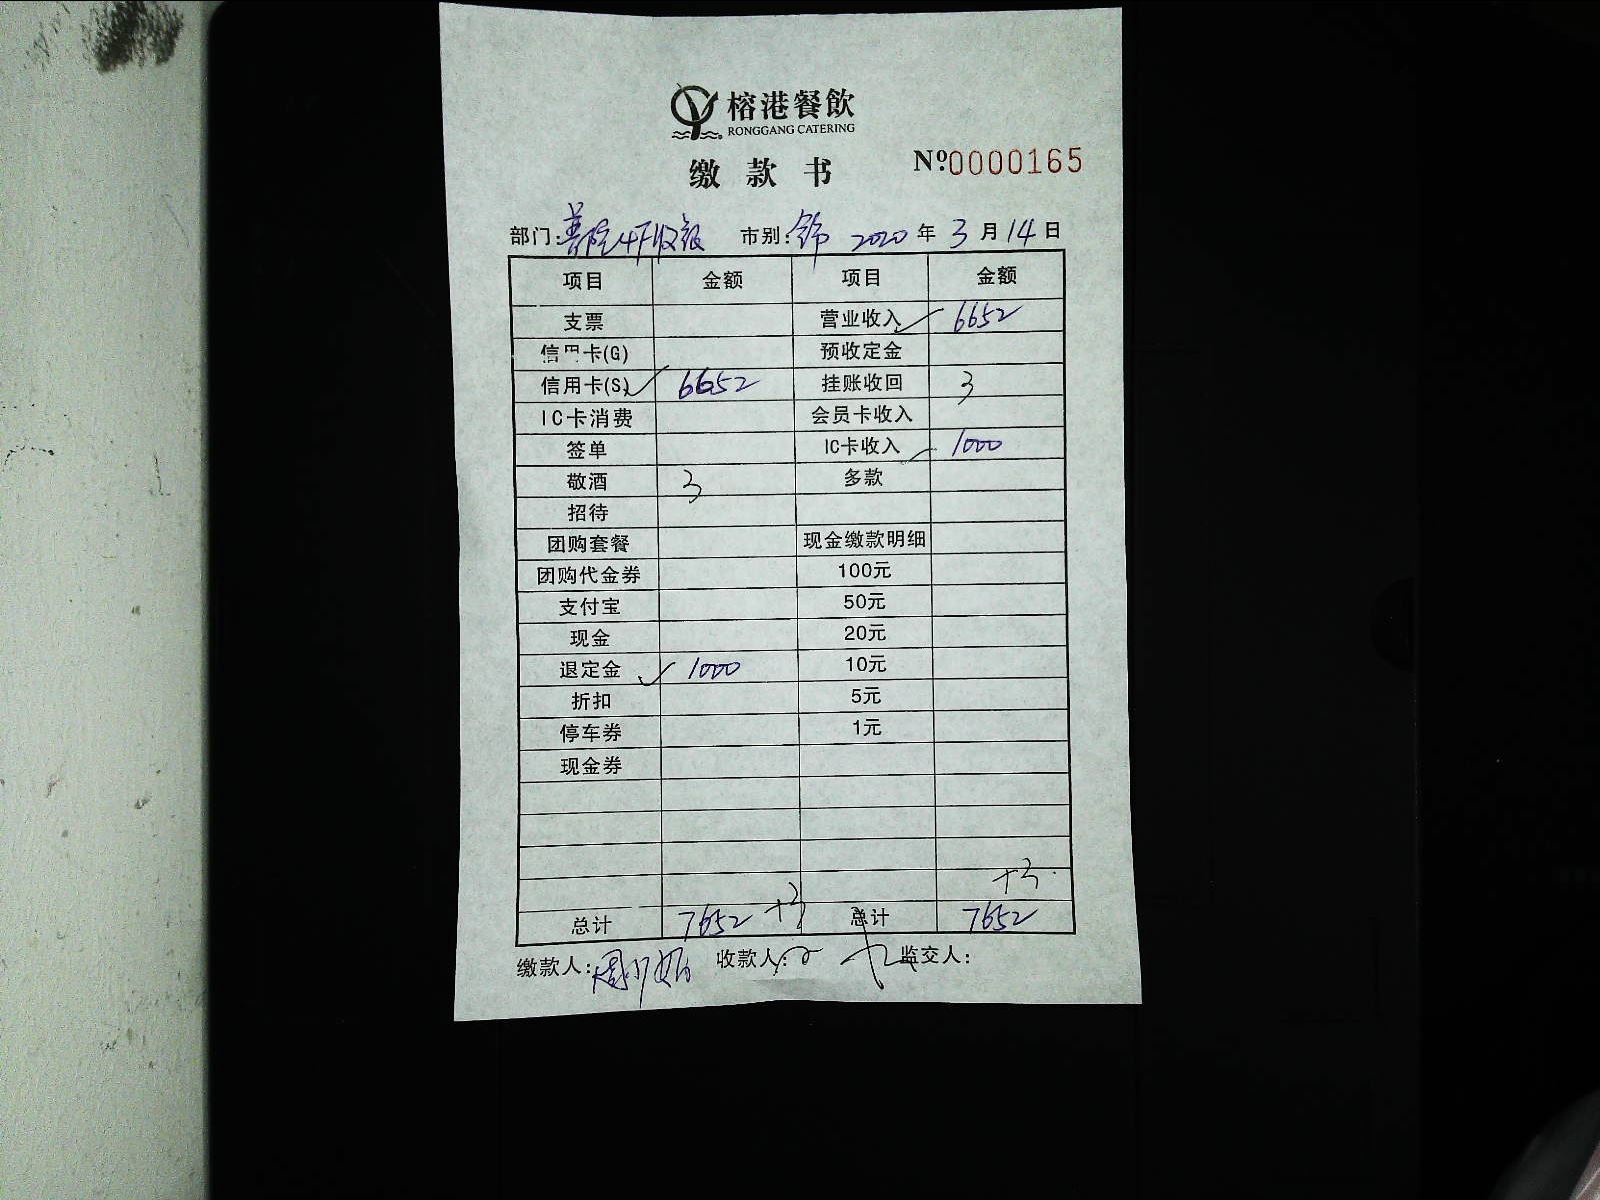 榕港餐飲
RONGGANG CATERING
缴款书 №0000165
部门: 4F收银 市别: 2020年3月14日
项目 金额 项目 金额
支票 营业收入 6652
信用卡(G) 预收定金
信用卡(S) 6652 挂账收回 3
IC卡消费 会员卡收入
签单 IC卡收入 1000
敬酒 3 多款
招待
团购套餐 现金缴款明细
团购代金券 100元
支付宝 50元
现金 20元
退定金 1000 10元
折扣 5元
停车券 1元
现金券
+3
总计 7652 +3 总计 7652
缴款人: 收款人: 监交人: